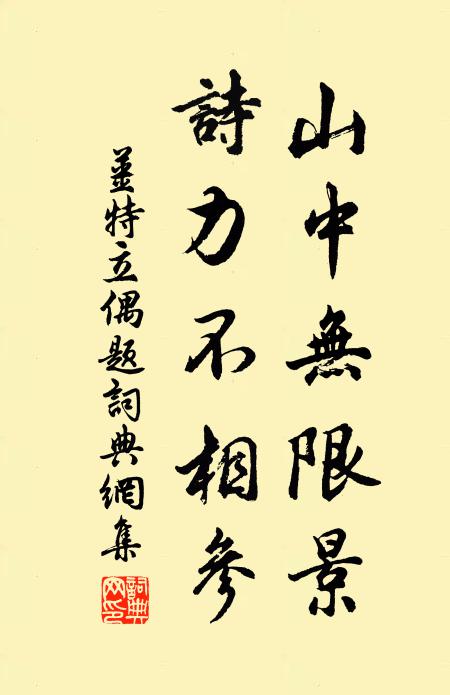 山中無限景
詩力不相參
薑特立偶題詞典網集
詞典网印